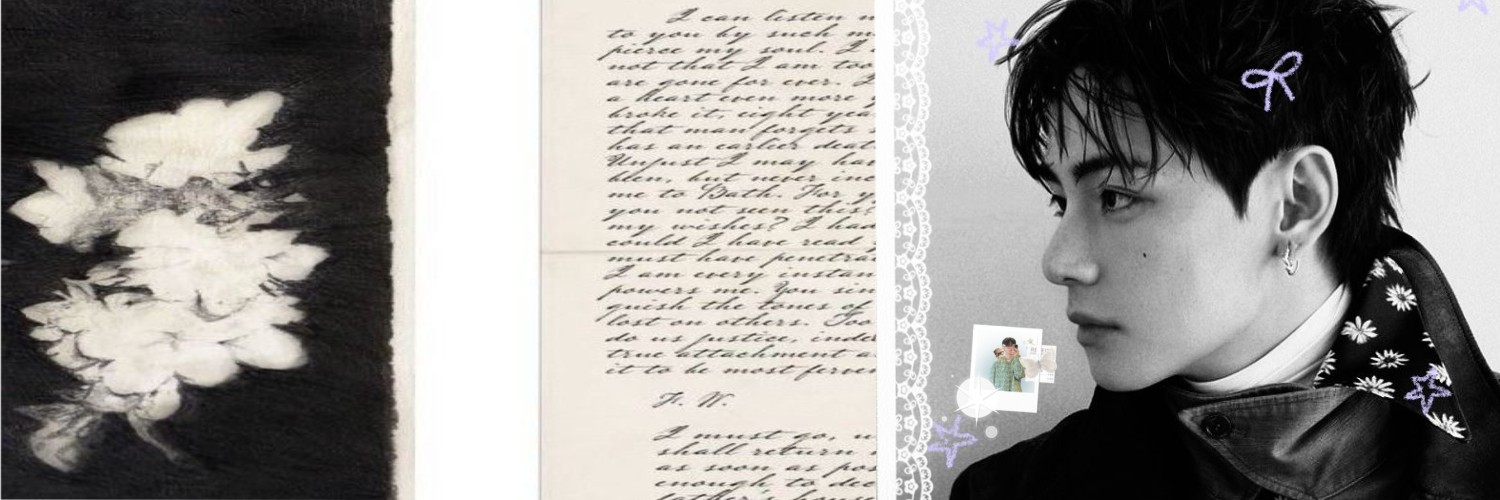 I can listen n
to you by such m
pierce my soul. I
not that I am too
are gone for ever. I
a heart even more y
broke it, eight yea
that man forgets s
has an earlier deat
Unjust I may hav
blen, but never inc
me to Bath. For y
you not seen this?
my wishes? I had
could I have read
must have penetra
I am every instan
powers me. You sin
guish the tones of
lost on others. Too
do us justice, inde
true attachment a
it to be most ferven
F. W.
I must go, u
shall return
as soon as pos
enough to dec
father's house